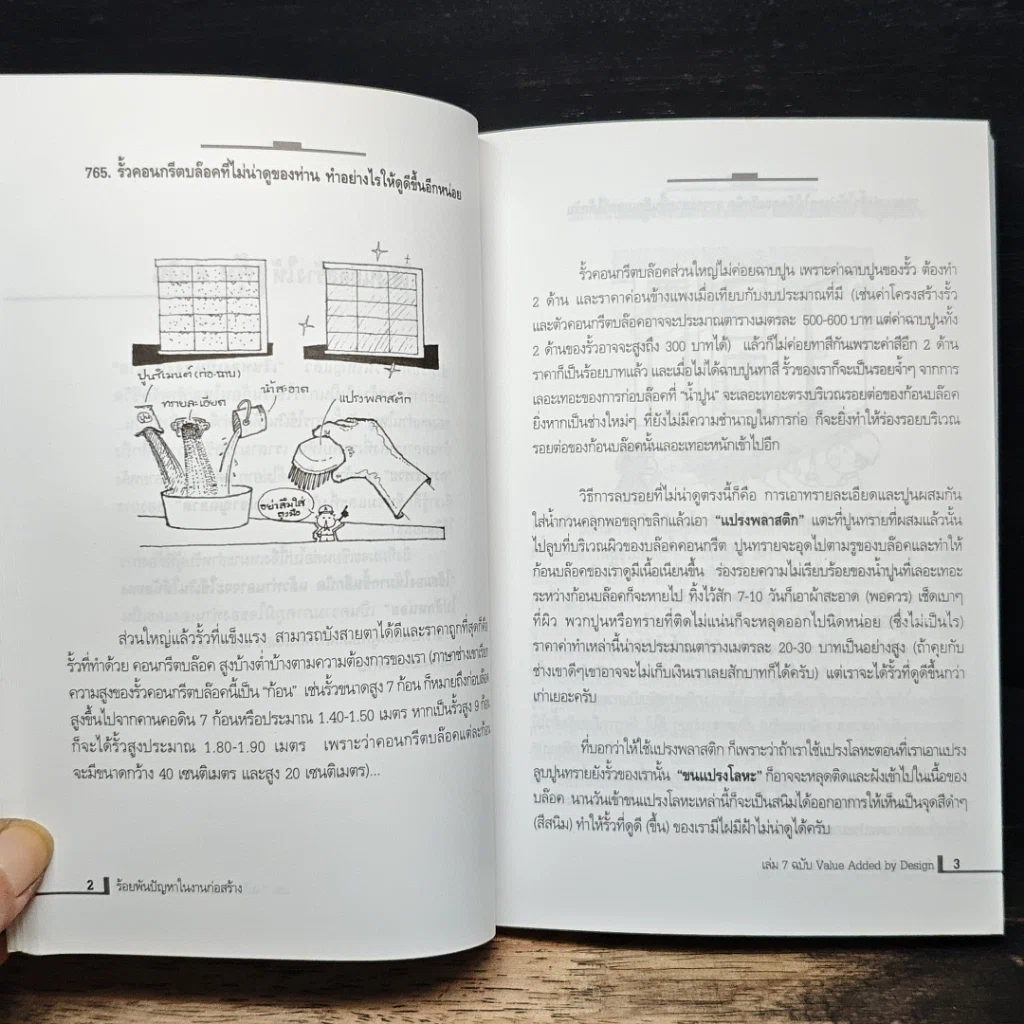 765. รั้วคอนกรีตบล๊อคที่ไม่น่าดูของท่าน ทำอย่างไรให้ดูดีขึ้นอีกหน่อย
ปูนซีเมนต์ (ก่อ-ฉาบ)
ทรายละเอียด
น้ำสะอาด
แปรงพลาสติก
อย่าลืมใส่
ถุงมือ
ส่วนใหญ่แล้วรั้วที่แข็งแรง สามารถบังสายตาได้ดีและราคาถูกที่สุดก็คือ
รั้วที่ทำด้วย คอนกรีตบล๊อค สูงบ้างต่ำบ้างตามความต้องการของเรา (ภาษาช่างเขาเรียก
ความสูงของรั้วคอนกรีตบล๊อคนี้เป็น "ก้อน" เช่นรั้วขนาดสูง 7 ก้อน ก็หมายถึงก่อบล๊อค
สูงขึ้นไปจากคานคอดิน 7 ก้อนหรือประมาณ 1.40-1.50 เมตร หากเป็นรั้วสูง 9 ก้อน
ก็จะได้รั้วสูงประมาณ 1.80-1.90 เมตร เพราะว่าคอนกรีตบล๊อคแต่ละก้อน
จะมีขนาดกว้าง 40 เซนติเมตร และสูง 20 เซนติเมตร)...
2 ร้อยพันปัญหาในงานก่อสร้าง
รั้วคอนกรีตบล๊อคส่วนใหญ่ไม่ค่อยฉาบปูน เพราะค่าฉาบปูนของรั้ว ต้องทำ
2 ด้าน และราคาค่อนข้างแพงเมื่อเทียบกับงบประมาณที่มี (เช่นค่าโครงสร้างรั้ว
และตัวคอนกรีตบล๊อคอาจจะประมาณตารางเมตรละ 500-600 บาท แต่ค่าฉาบปูนทั้ง
2 ด้านของรั้วอาจจะสูงถึง 300 บาทได้) แล้วก็ไม่ค่อยทาสีกันเพราะค่าสีอีก 2 ด้าน
ราคาก็เป็นร้อยบาทแล้ว และเมื่อไม่ได้ฉาบปูนทาสี รั้วของเราก็จะเป็นรอยจ้ำๆ จากการ
เลอะเทอะของการก่อบล๊อคที่ "น้ำปูน" จะเลอะเทอะตรงบริเวณรอยต่อของก้อนบล๊อค
ยิ่งหากเป็นช่างใหม่ๆ ที่ยังไม่มีความชำนาญในการก่อ ก็จะยิ่งทำให้ร่องรอยบริเวณ
รอยต่อของก้อนบล๊อคนั้นเลอะเทอะหนักเข้าไปอีก
วิธีการลบรอยที่ไม่น่าดูตรงนี้ก็คือ การเอาทรายละเอียดและปูนผสมกัน
ใส่น้ำกวนคลุกพอขลุกขลิกแล้วเอา "แปรงพลาสติก" แตะที่ปูนทรายที่ผสมแล้วนั้น
ไปลูบที่บริเวณผิวของบล๊อคคอนกรีต ปูนทรายจะอุดไปตามรูของบล๊อคและทำให้
ก้อนบล๊อคของเราดูมีเนื้อเนียนขึ้น ร่องรอยความไม่เรียบร้อยของน้ำปูนที่เลอะเทอะ
ระหว่างก้อนบล๊อคก็จะหายไป ทิ้งไว้สัก 7-10 วันก็เอาผ้าสะอาด (พอควร) เช็ดเบาๆ
ที่ผิว พวกปูนหรือทรายที่ติดไม่แน่นก็จะหลุดออกไปนิดหน่อย (ซึ่งไม่เป็นไร)
ราคาค่าทำเหล่านี้น่าจะประมาณตารางเมตรละ 20-30 บาทเป็นอย่างสูง (ถ้าคุยกับ
ช่างเขาดีๆเขาอาจจะไม่เก็บเงินเราเลยสักบาทก็ได้ครับ) แต่เราจะได้รั้วที่ดูดีขึ้นกว่า
เก่าเยอะครับ
ที่บอกว่าให้ใช้แปรงพลาสติก ก็เพราะว่าถ้าเราใช้แปรงโลหะตอนที่เราเอาแปรง
ลูบปูนทรายยังรั้วของเรานั้น "ขนแปรงโลหะ" ก็อาจจะหลุดติดและฝังเข้าไปในเนื้อของ
บล๊อค นานวันเข้าขนแปรงโลหะเหล่านี้ก็จะเป็นสนิมได้ออกอาการให้เห็นเป็นจุดสีดำๆ
(สีสนิม) ทำให้รั้วที่ดูดี (ขึ้น) ของเรามีไฝมีฝ้าไม่น่าดูได้ครับ
เล่ม 7 ฉบับ Value Added by Design 3